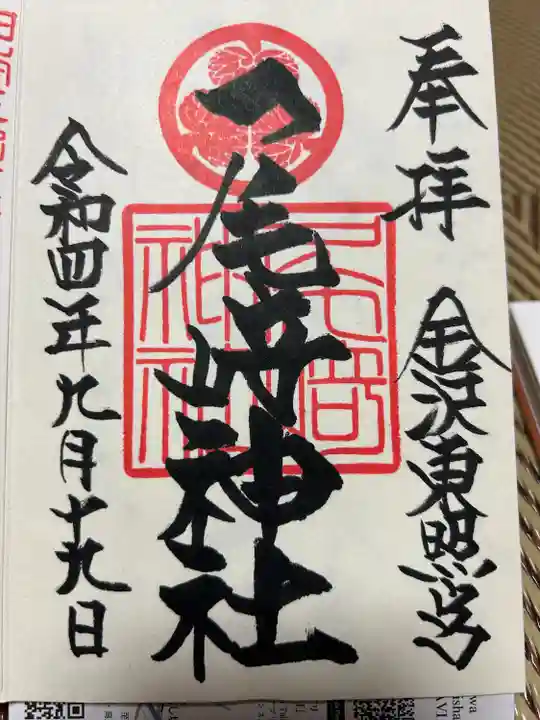 奉拝
金沢東照宮
尾崎神社
令和四年九月十九日